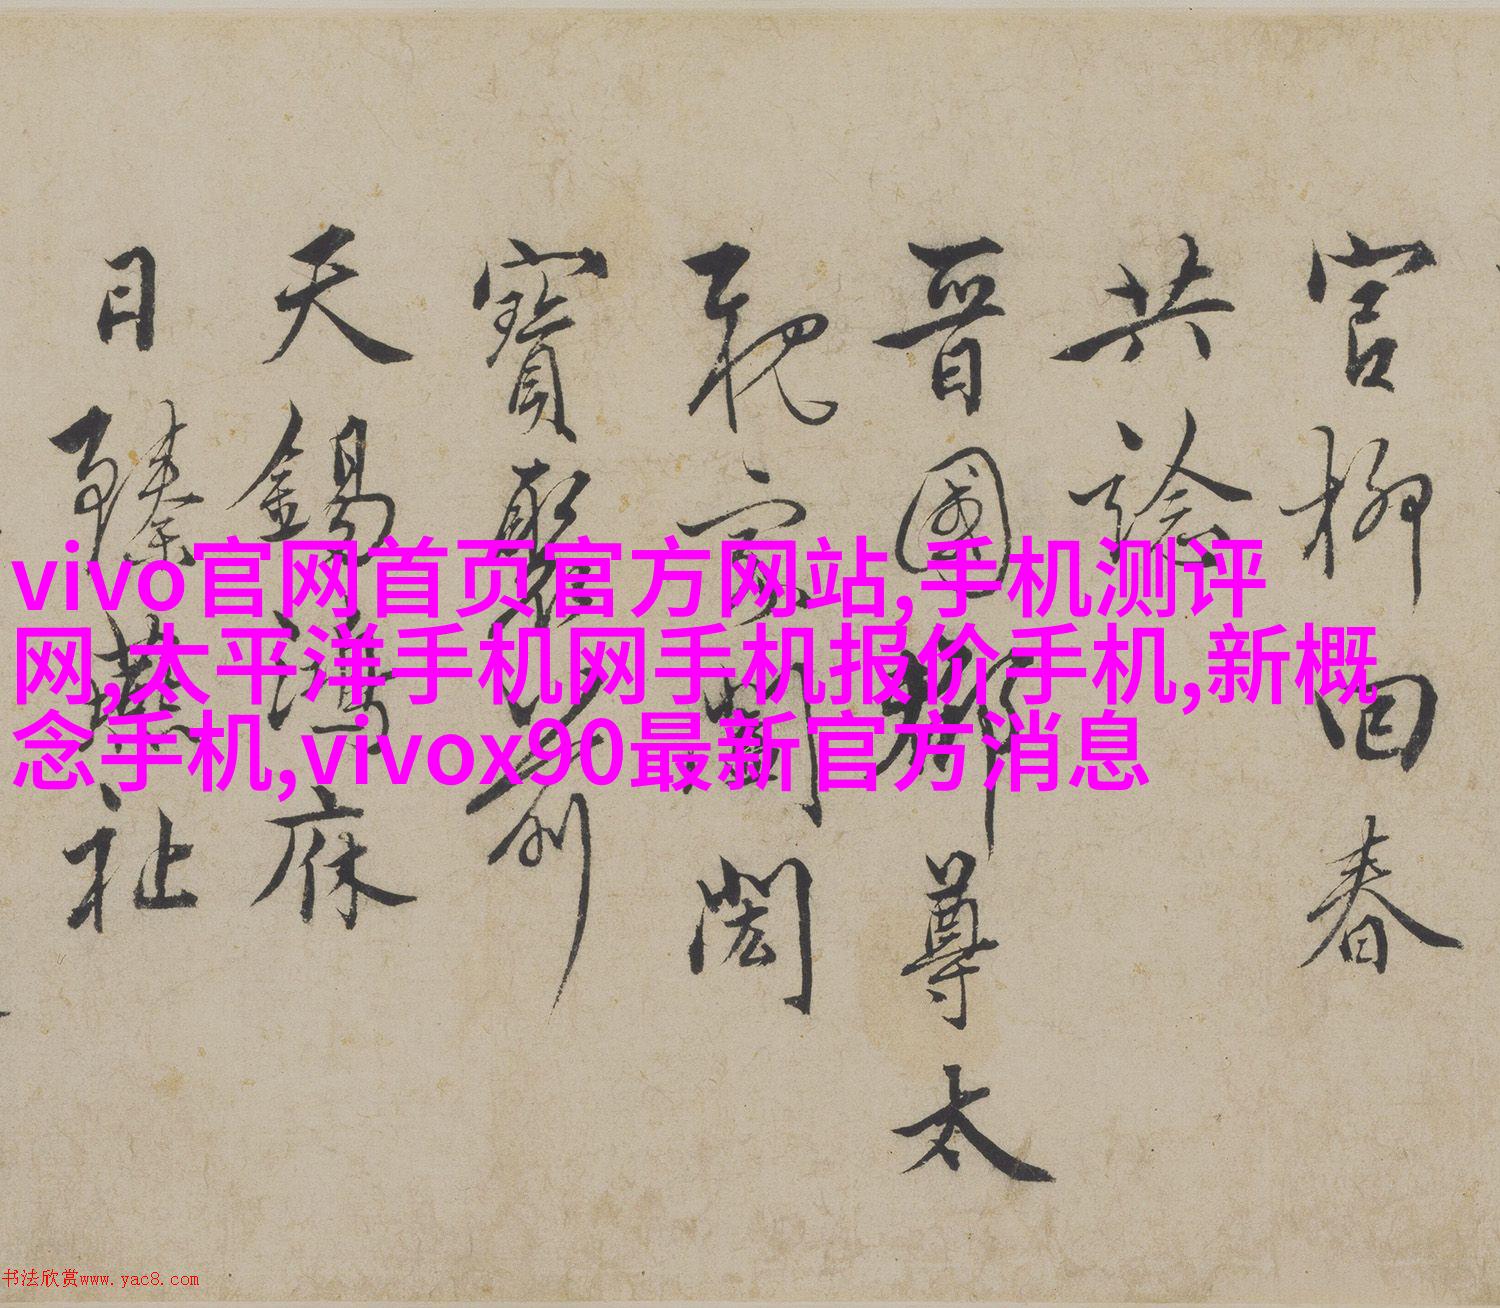 vivo官网首页官方网站,手机测评
网,太平洋手机网手机报价手机,新概
念手机,vivox90最新官方消息
官柳回春
共諗
晉國尊太
寶
天錫鴻庥
日臻燕祉
书法欣赏www.yac8.com